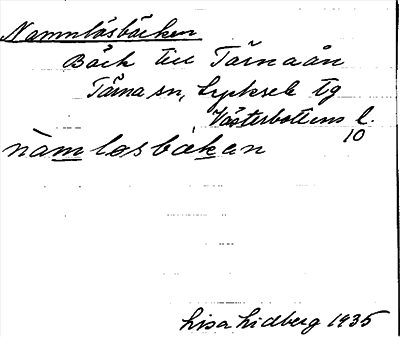 Namnlösbäcken
Bäck till Tärnaån
Tärna sn, Lycksele tg
Västerbottens l.
10
nàmlosbäkan
Lisa Lidberg 1935